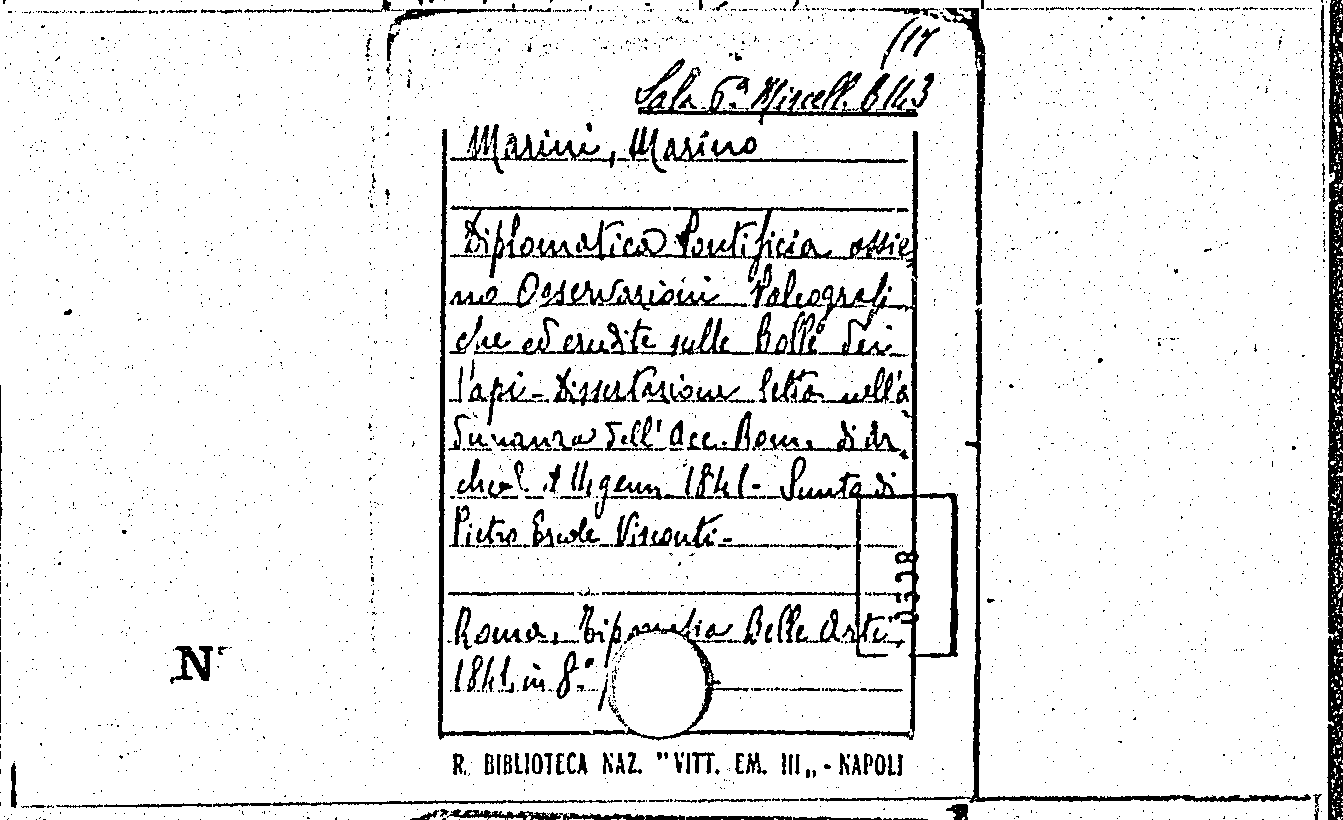 (17
Sala 6ª Miscell. B 14.3
Marini, Marino
Diplomatica Pontificia ossie
no Osservazioni Paleografi
che ed erudite sulle Bolle dei
Papi - Dissertazione letta nell'a
dunanza dell'Acc. Rom. di Ar
cheol. 14 genn. 1841 - Giunta di
Pietro Ercole Visconti -
Roma, Tipografia Belle Arti,
1841, in 8.°
R. BIBLIOTECA NAZ. "VITT. EM. III„ - NAPOLI
N